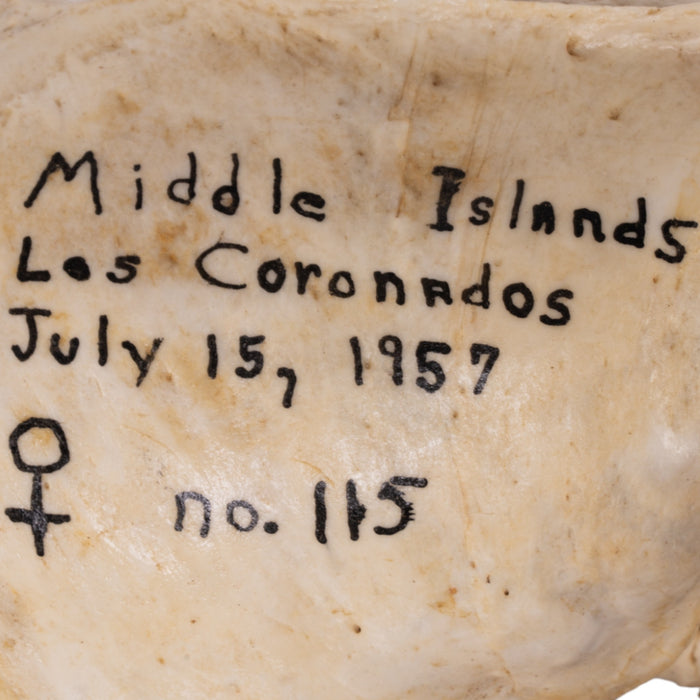 Middle Islands
Los Coronados
July 15, 1957
♀ no. 115